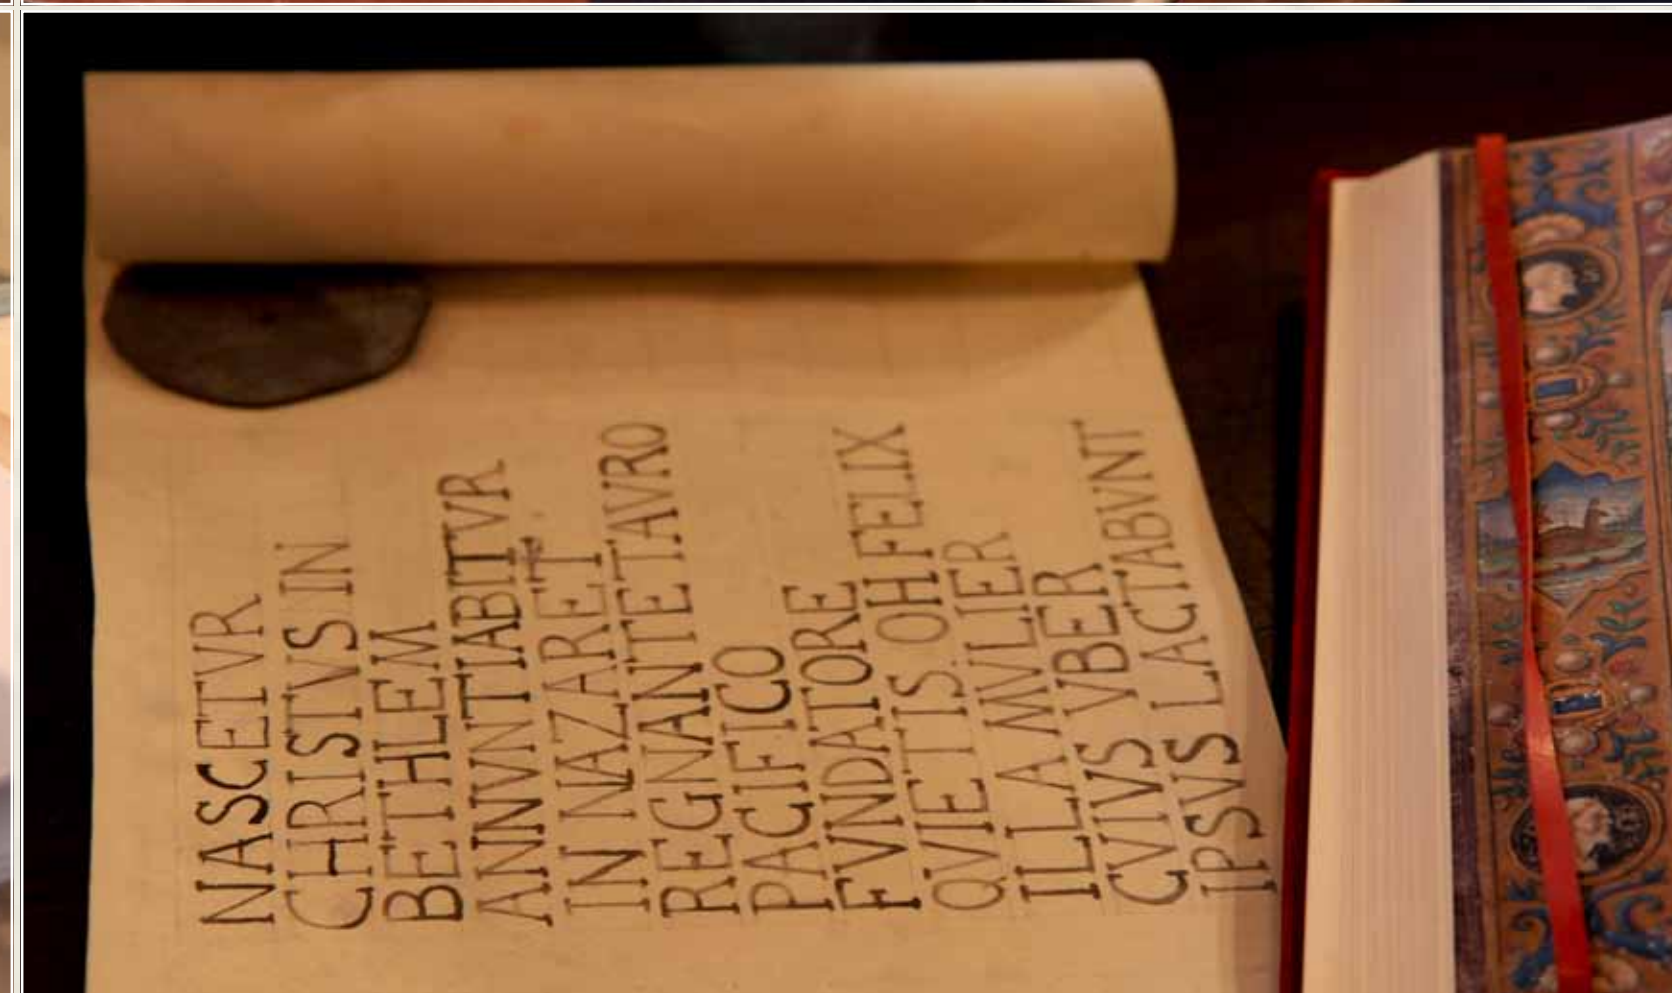 NASCETVR
CHRISTVS IN
BETHLEM
ANNVNTIABITVR
IN NAZARET
REGNANTE TAVRO
PACIFICO
FVNDATORE
QVIETIS OH FELIX
ILLA MVLIER
CVIVS VBER
IPSVS LACTABVNT